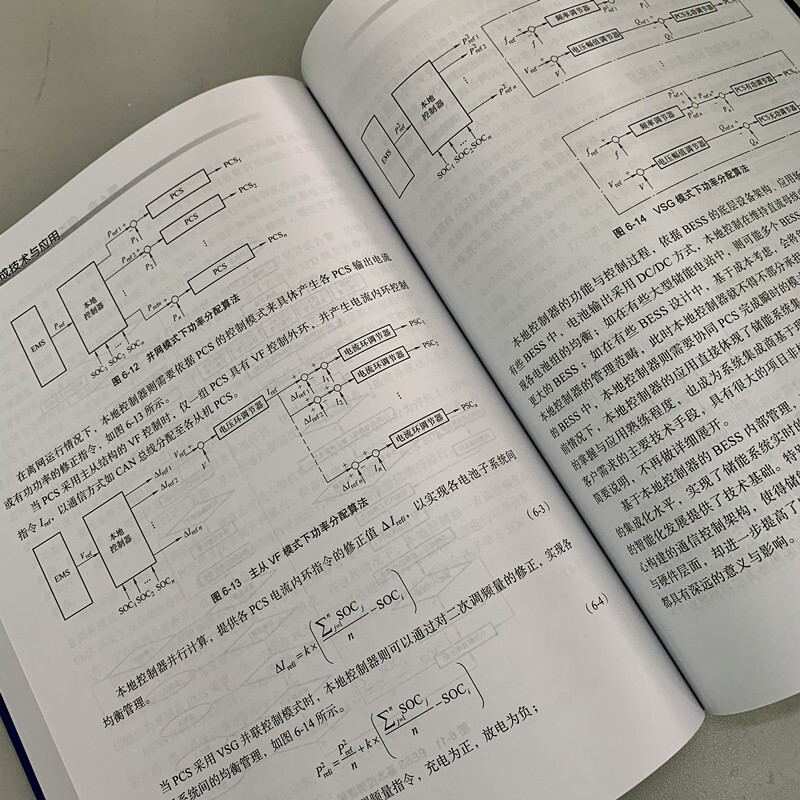 成技术与应用
EMS
P_ref
本地
控制器
SOC₁ SOC₂ SOCₙ
P_ref1
P₁
PCS
PCS₁
P_ref2
P₂
PCS
PCS₂
P_refn
Pₙ
PCS
PCSₙ
图 6-12 并网模式下功率分配算法
在离网运行情况下,本地控制器则需要依据 PCS 的控制模式来具体产生各 PCS 输出电流
或有功功率的修正指令,如图 6-13 所示。
当 PCS 采用主从结构的 VF 控制时,仅一组 PCS 具有 VF 控制外环,并产生电流内环控制
指令 I_ref,以通信方式如 CAN 总线分配至各从机 PCS。
EMS
V_ref
本地
控制器
SOC₁ SOC₂ SOCₙ
ΔI_ref1
ΔI_ref2
ΔI_refn
V_ref
V
电压环调节器
I_ref
ΔI_ref1
I₁
电流环调节器
PSC₁
ΔI_ref2
I₂
电流环调节器
PSC₂
ΔI_refn
Iₙ
电流环调节器
PSCₙ
图 6-13 主从 VF 模式下功率分配算法
本地控制器并行计算,提供各 PCS 电流内环指令的修正值 ΔI_refi,以实现各电池子系统间
均衡管理。
ΔI_refi = k × (∑ⁿⱼ₌₁ SOCⱼ / n − SOCᵢ) (6-3)
当 PCS 采用 VSG 并联控制模式时,本地控制器则可以通过对二次调频量的修正,实现各
系统间的均衡管理,如图 6-14 所示。
P²_refi = P²_ref / n + k × (∑ⁿⱼ₌₁ SOCⱼ / n − SOCᵢ) (6-4)
调频量指令,充电为正,放电为负;
EMS
P²_ref
本地
控制器
SOC₁ SOC₂ SOCₙ
P²_ref1
P²_ref2
P²_refn
f_ref
f
频率调节器
P₁
V_ref
V
电压幅值调节器
Q₁
PCS无功调节器
f_ref
f
频率调节器
P²_refn
P_refn
Pₙ
PCS有功调节器
PCSₙ
V_ref
V
电压幅值调节器
Q_refn
Qₙ
PCS无功调节器
图 6-14 VSG 模式下功率分配算法
本地控制器的功能与控制过程,依据 BESS 的底层设备架构、应用场
有些 BESS 中,电池输出采用 DC/DC 方式,本地控制在维持直流母线
现各电池组的均衡;如在有些大型储能电站中,则可能多个 BESS
更大的 BESS;如在有些 BESS 设计中,基于成本考虑,会将
本地控制器的管理范畴,此时本地控制器就不得不部分承担
的 BESS 中,本地控制器则需要协同 PCS 完成瞬时的模
前情况下,本地控制器的应用直接体现了储能系统集
的掌握与应用熟练程度,也成为系统集成商基于
客户需求的主要技术手段,具有很大的项目非
简要说明,不再做详细展开。
基于本地控制器的 BESS 内部管理,
的集成化水平,实现了储能系统实时的
的智能化发展提供了技术基础。特
心构建的通信控制架构,使得储
与硬件层面,却进一步提高了
都具有深远的意义与影响。